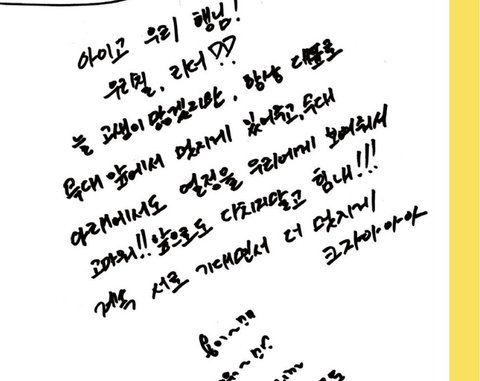 아이고 우리 행님!
우리팀, 리더??
늘 고생이 많겠지만, 항상 대표로
무대 앞에서 멋지게 있어주고, 무대
아래에서도 열정을 우리에게 보여줘서
고마워!! 앞으로도 다치지말고 힘내!!!
계속 서로 기대면서 더 멋지게
크자아아아